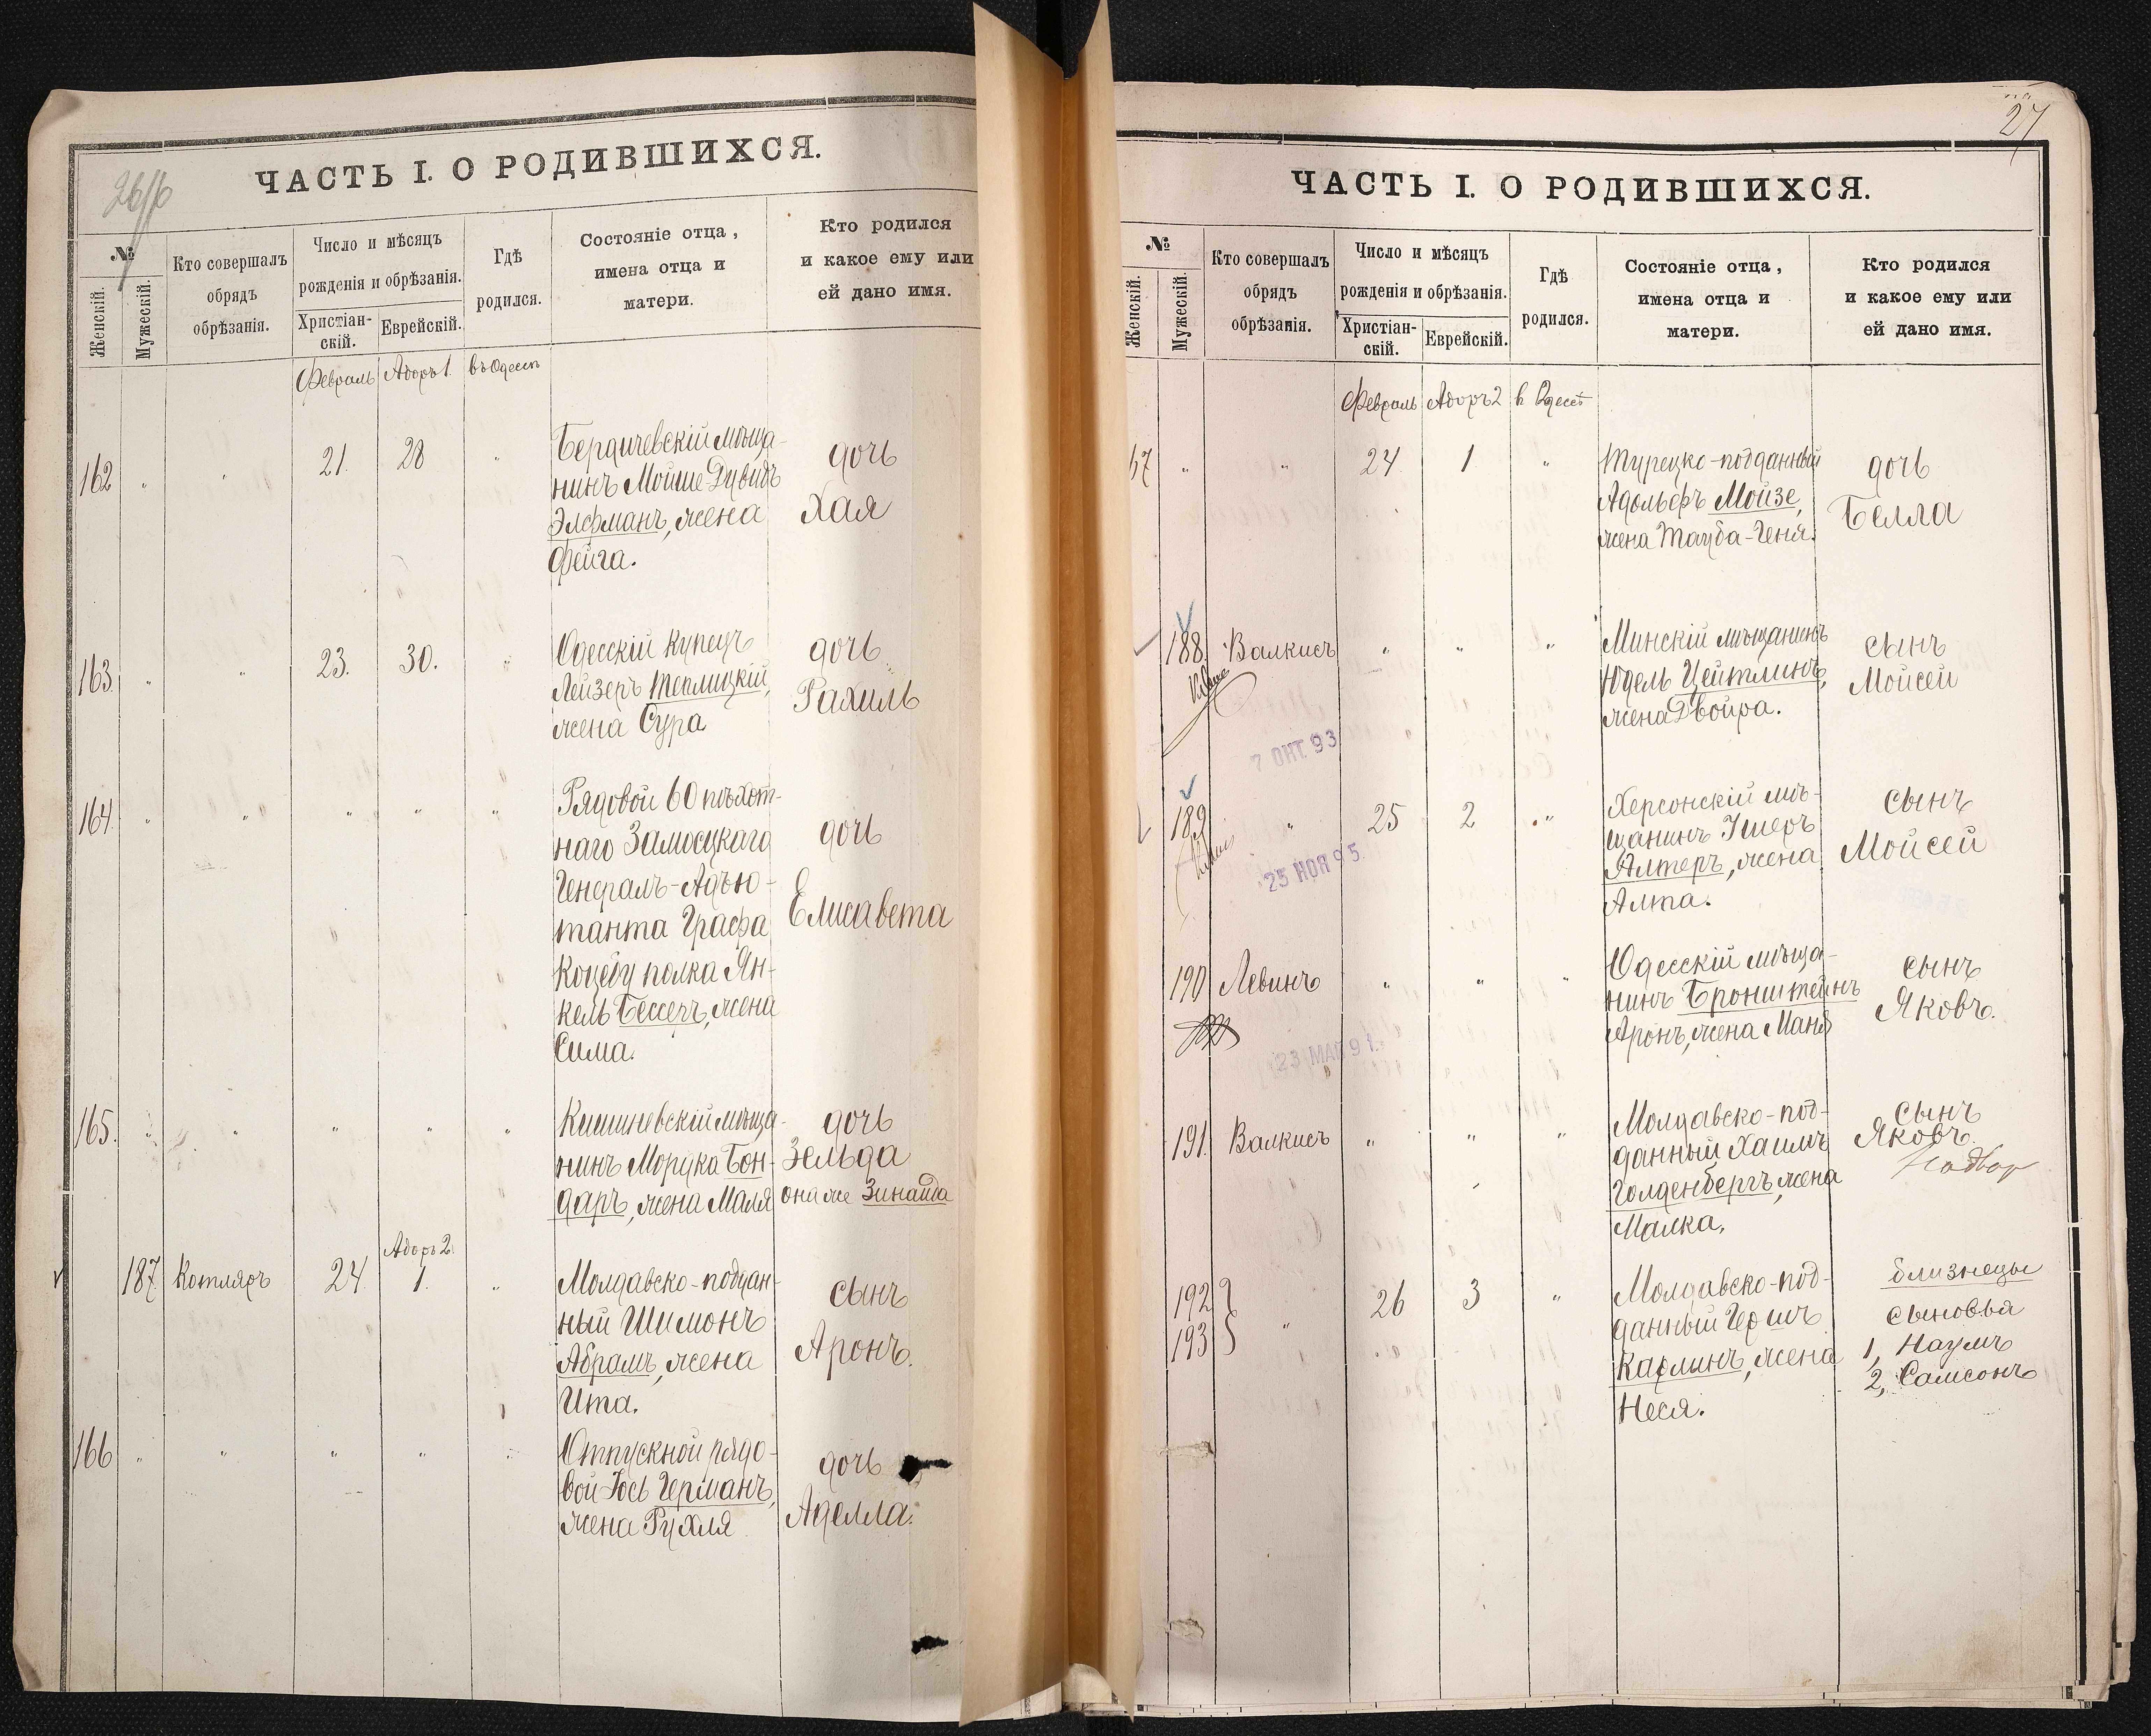 ЧАСТЬ I. О РОДИВШИХСЯ.
№
Женскій.
Мужескій.
Кто совершалъ
обрядъ
обрѣзанія.
Число и мѣсяцъ
рожденія и обрѣзанія.
Христіан-
скій.
Еврейскій.
Гдѣ
родился.
Состояніе отца,
имена отца и
матери.
Кто родился
и какое ему или
ей дано имя.
Февраль Адоръ 1. въ Одессѣ
162 " " 21. 28 "
Бердичевскій мѣща-
нинъ Мойше Дувидъ
Элфманъ, жена
Фейга.
дочь
Хая
163. " " 23. 30. "
Одесскій купецъ
Лейзеръ Теплицкій,
жена Сура
дочь
Рахиль
164. " " " " "
Рядовой 60 пѣхот-
наго Замосцкаго
Генералъ-Адъю-
танта Графа
Коцебу полка Ян-
кель Бессеръ, жена
Сима.
дочь
Елисавета
165. " " " " "
Кишиневскій мѣща-
нинъ Мордка Бон-
даръ, жена Маля
дочь
Зельда
она же Зинаида
Адоръ 2.
187 Котляръ 24 1. "
Молдавско-поддан-
ный Шимонъ
Абрамъ, жена
Ита.
сынъ
Аронъ.
166 " " " " "
Отпускной рядо-
вой Іось Германъ,
жена Рухля
дочь
Аделла.
27
ЧАСТЬ I. О РОДИВШИХСЯ.
№
Женскій.
Мужескій.
Кто совершалъ
обрядъ
обрѣзанія.
Число и мѣсяцъ
рожденія и обрѣзанія.
Христіан-
скій.
Еврейскій.
Гдѣ
родился.
Состояніе отца,
имена отца и
матери.
Кто родился
и какое ему или
ей дано имя.
Февраль Адоръ 2 в Одессѣ
67 " " 24 1 "
Турецко-подданный
Адольфъ Мойзе,
жена Тауба-Геня.
дочь
Белла
188. Валкисъ " " "
Минскій мѣщанинъ
Юдель Цейтлинъ,
жена Двойра.
сынъ
Мойсей
7 ОКТ. 93
189 " 25 2 "
Херсонскій мѣ-
щанинъ Ушеръ
Алтеръ, жена
Алта.
сынъ
Мойсей
25 НОЯ 95
190 Левинъ " " "
Одесскій мѣща-
нинъ Бронштейнъ
Аронъ, жена Маня
сынъ
Яковъ.
23 МАЯ 91.
191. Валкисъ " " "
Молдавско-под-
данный Хаимъ
Голденбергъ, жена
Малка.
сынъ
Яковъ.
192 " 26 3 "
193
Молдавско-под-
данный Гершъ
Карлинъ, жена
Неся.
близнецы
сыновья
1, Наумъ
2, Самсонъ